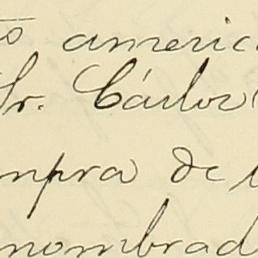 to americ
Sr. Cárlos
mpra de
nombrad